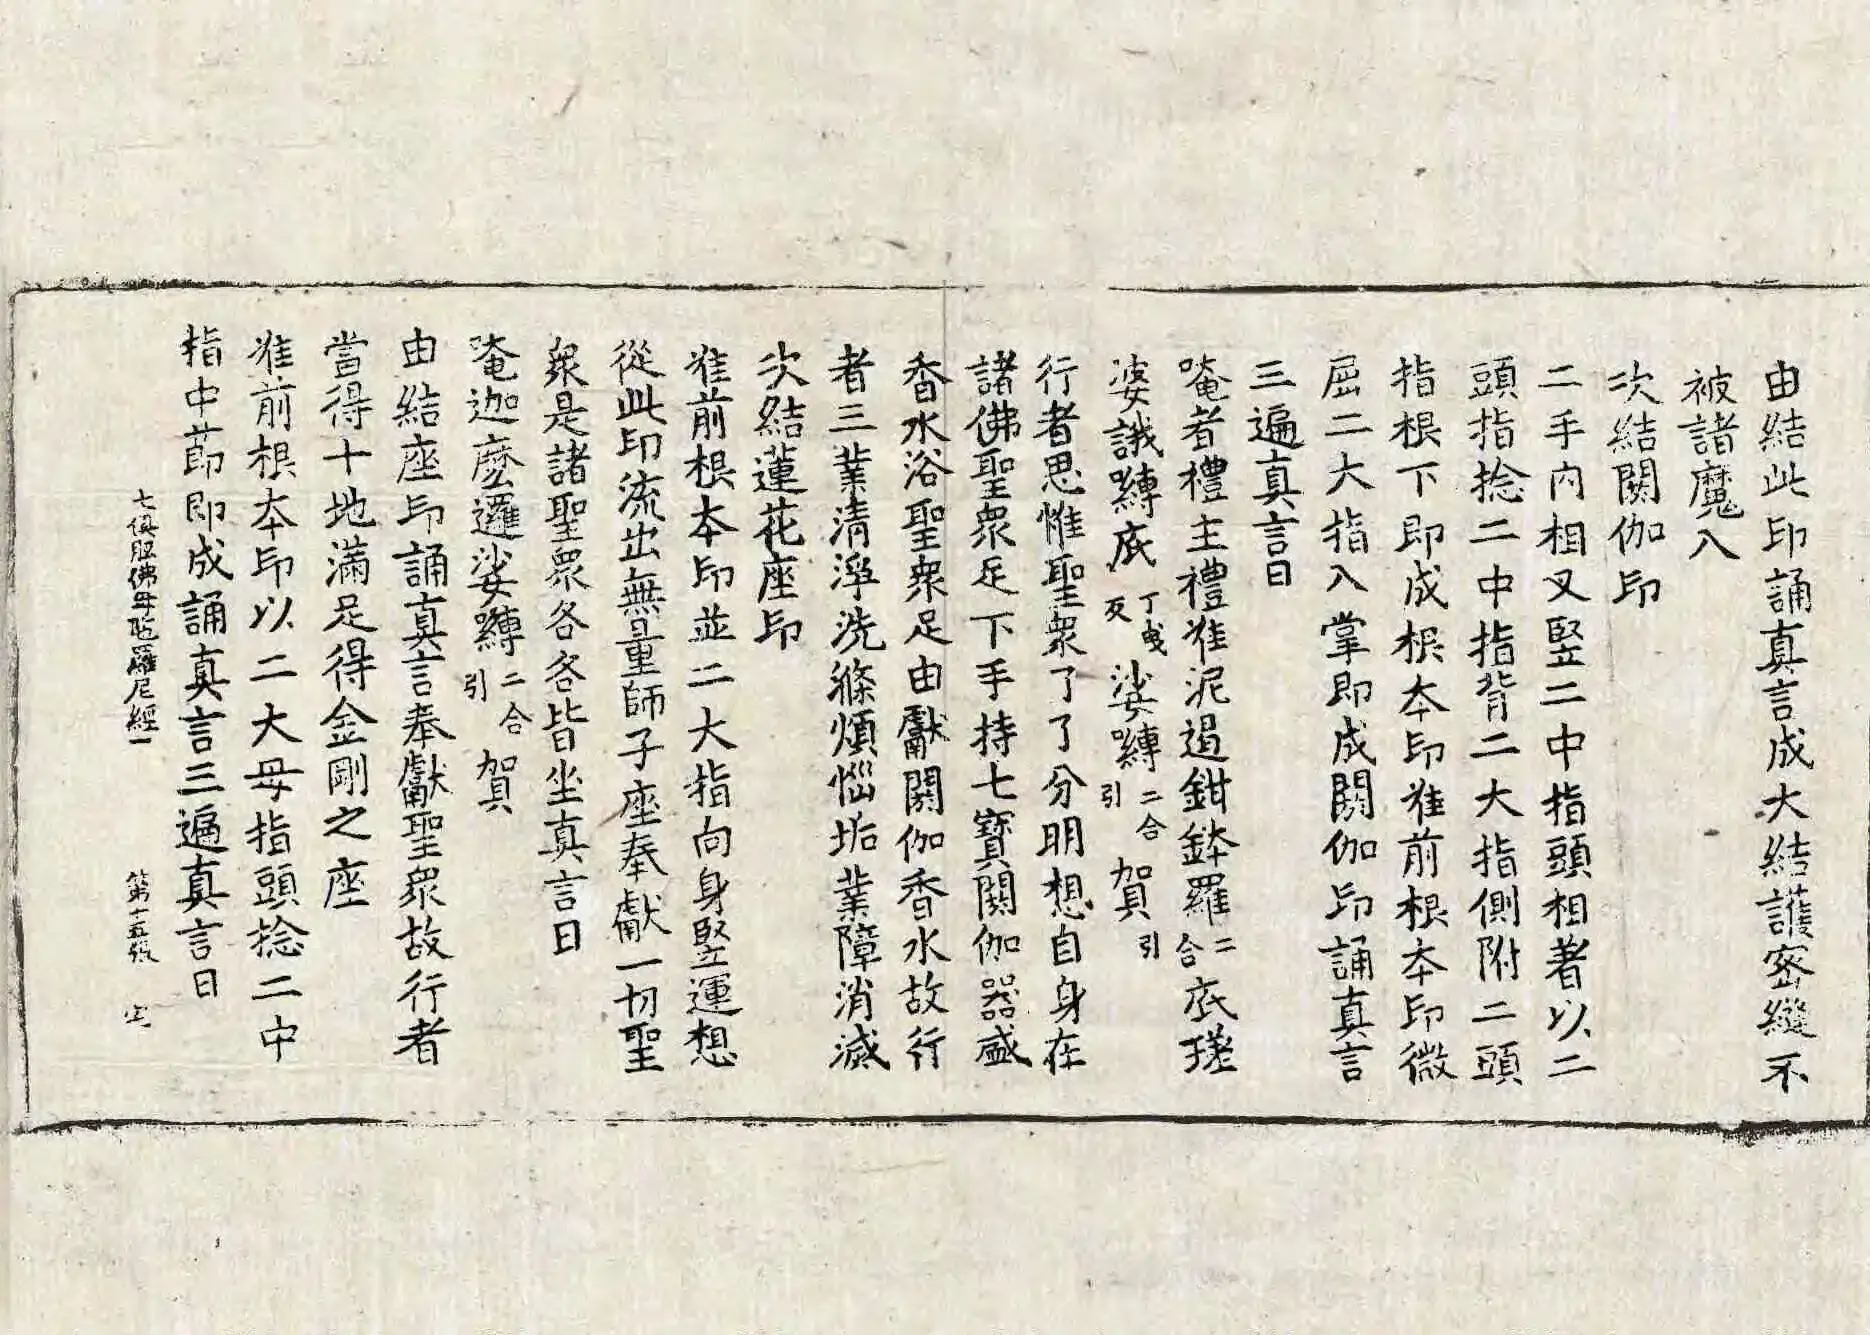 由結此印誦真言成大結護密縫不
被諸魔入
次結閼伽印
二手內相叉竪二中指頭相著以二
頭指捻二中指背二大指側附二頭
指根下即成根本印准前根本印微
屈二大指入掌即成閼伽印誦真言
三遍真言曰
唵者禮主禮准泥遏鉗鉢羅二合底瑳
婆誐嚩底丁曳反娑嚩二合引賀引
行者思惟聖衆了了分明想自身在
諸佛聖衆足下手持七寶閼伽器盛
香水浴聖衆足由獻閼伽香水故行
者三業清淨洗滌煩惱垢業障消滅
次結蓮花座印
准前根本印並二大指向身竪運想
從此印流出無量師子座奉獻一切聖
衆是諸聖衆各各皆坐真言曰
唵迦麽邏娑嚩二合引賀
由結座印誦真言奉獻聖衆故行者
當得十地滿足得金剛之座
准前根本印以二大母指頭捻二中
指中節即成誦真言三遍真言曰
七俱胝佛母陁羅尼經一 第十五張 定